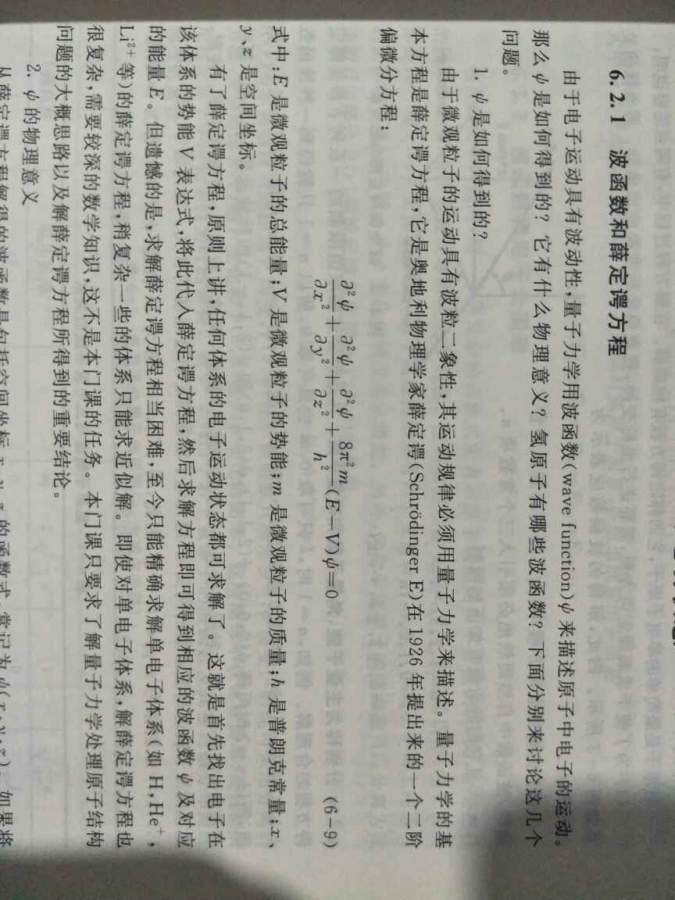 6.2.1 波函数和薛定谔方程
由于电子运动具有波动性,量子力学用波函数(wave function)ψ来描述原子中电子的运动。
那么ψ是如何得到的?它有什么物理意义?氢原子有哪些波函数?下面分别来讨论这几个
问题。
1. ψ是如何得到的?
由于微观粒子的运动具有波粒二象性,其运动规律必须用量子力学来描述。量子力学的基
本方程是薛定谔方程,它是奥地利物理学家薛定谔(Schrödinger E)在1926年提出来的一个二阶
偏微分方程:
∂²ψ/∂x²+∂²ψ/∂y²+∂²ψ/∂z²+8π²m/h²(E-V)ψ=0 (6-9)
式中:E是微观粒子的总能量;V是微观粒子的势能;m是微观粒子的质量;h是普朗克常量;x、
y、z是空间坐标。
有了薛定谔方程,原则上讲,任何体系的电子运动状态都可求解了。这就是首先找出电子在
该体系的势能V表达式,将此代入薛定谔方程,然后求解方程即可得到相应的波函数ψ及对应
的能量E。但遗憾的是,求解薛定谔方程相当困难,至今只能精确求解单电子体系(如H,He⁺,
Li²⁺等)的薛定谔方程,稍复杂一些的体系只能求近似解。即使对单电子体系,解薛定谔方程也
很复杂,需要较深的数学知识,这不是本门课的任务。本门课只要求了解量子力学处理原子结构
问题的大概思路以及解薛定谔方程所得到的重要结论。
2. ψ的物理意义
从薛定谔方程解得的波函数是包括空间坐标x,y,z的函数式,常记为ψ(x,y,z)。如果将